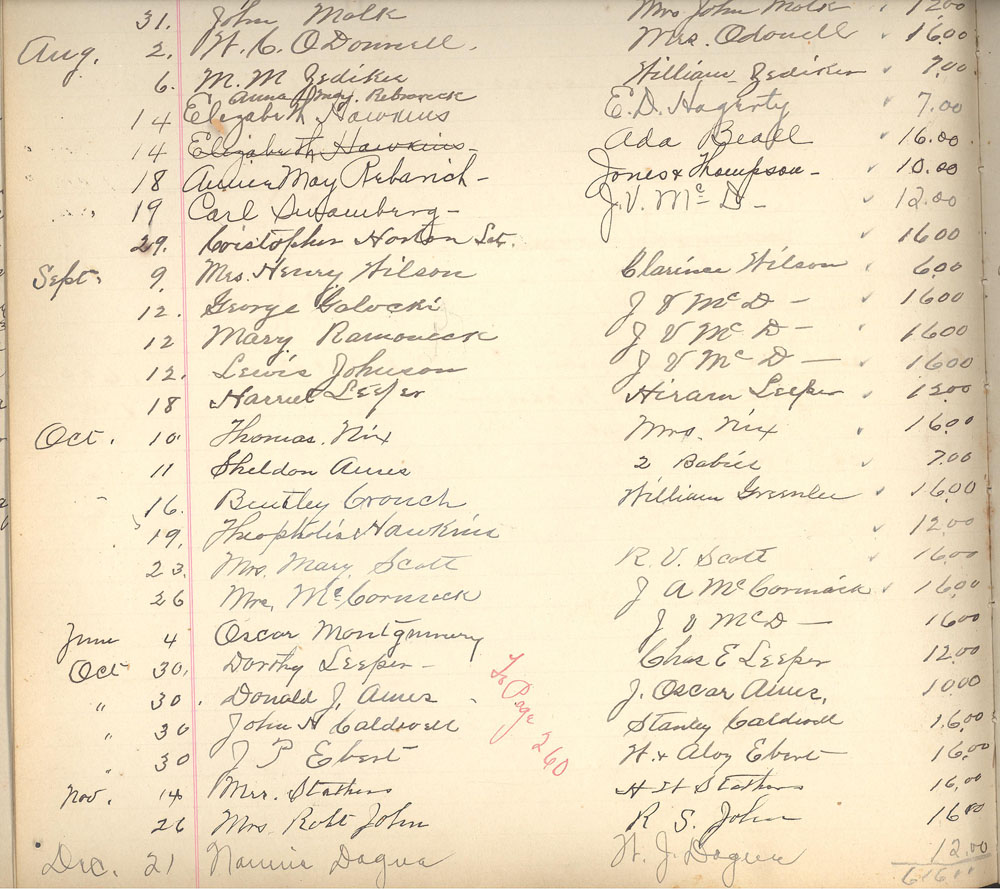 31. John Molk Mrs John Molk 12.00
Aug. 2. W. C. O'Donnell. Mrs. Odonell ✓ 16.00
6. M. M. Zediker William Zediker ✓ 7.00
Anna Rebraneck
14 Elizabeth Hawkins E. D. Hagerty ✓ 7.00
14 Elizabeth Hawkins - Ada Beall ✓ 16.00
18 Annie May Rebarich - Jones & Thompson - ✓ 10.00
19 Carl Swamberg - J. V. Mc D - ✓ 12.00
29. Cristopher Horton ✓ 16.00
Sept. 9. Mrs. Henry Wilson Clarince Wilson ✓ 6.00
12. George Galocki J V Mc D - ✓ 16.00
12 Mary Ramoneck J V Mc D - ✓ 16.00
12. Lewis Johnson J V Mc D - ✓ 16.00
18 Harriet Leeper Hiram Leeper ✓ 12.00
Oct. 10. Thomas. Nix Mrs. Nix ✓ 16.00
11 Sheldon Ames 2 Babies ✓ 7.00
16. Bentley Crouch William Greenlee ✓ 16.00
19. Theopholis Hawkins ✓ 12.00
23. Mrs. Mary Scott R. V. Scott ✓ 16.00
26 Mrs. McCormick J A McCormack ✓ 16.00
June 4 Oscar Montgumery J V Mc D - 16.00
Oct 30, Dorothy Leeper - Chas E Leeper 12.00
" 30. Donald J. Ames - J. Oscar Ames, 10.00
" 30 John H Caldwell Stanley Caldwell 16.00
" 30 J P Ebert W. & Aloy Ebert 16.00
To Page 260
Nov. 14 Mrs. Stathers H H Stathers 16.00
26 Mrs. Robt John R S. John 16.00
Dec. 21 Nannie Dague W. J. Dague 12.00
616.00